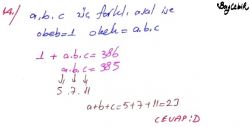 BayÇebir
14/ a,b,c üç farklı asal ise
obeb=1 okek=a.b.c
1 + a.b.c = 386
a.b.c = 385
↓ ↓ ↓
5 . 7 . 11
a+b+c=5+7+11=23
CEVAP:D